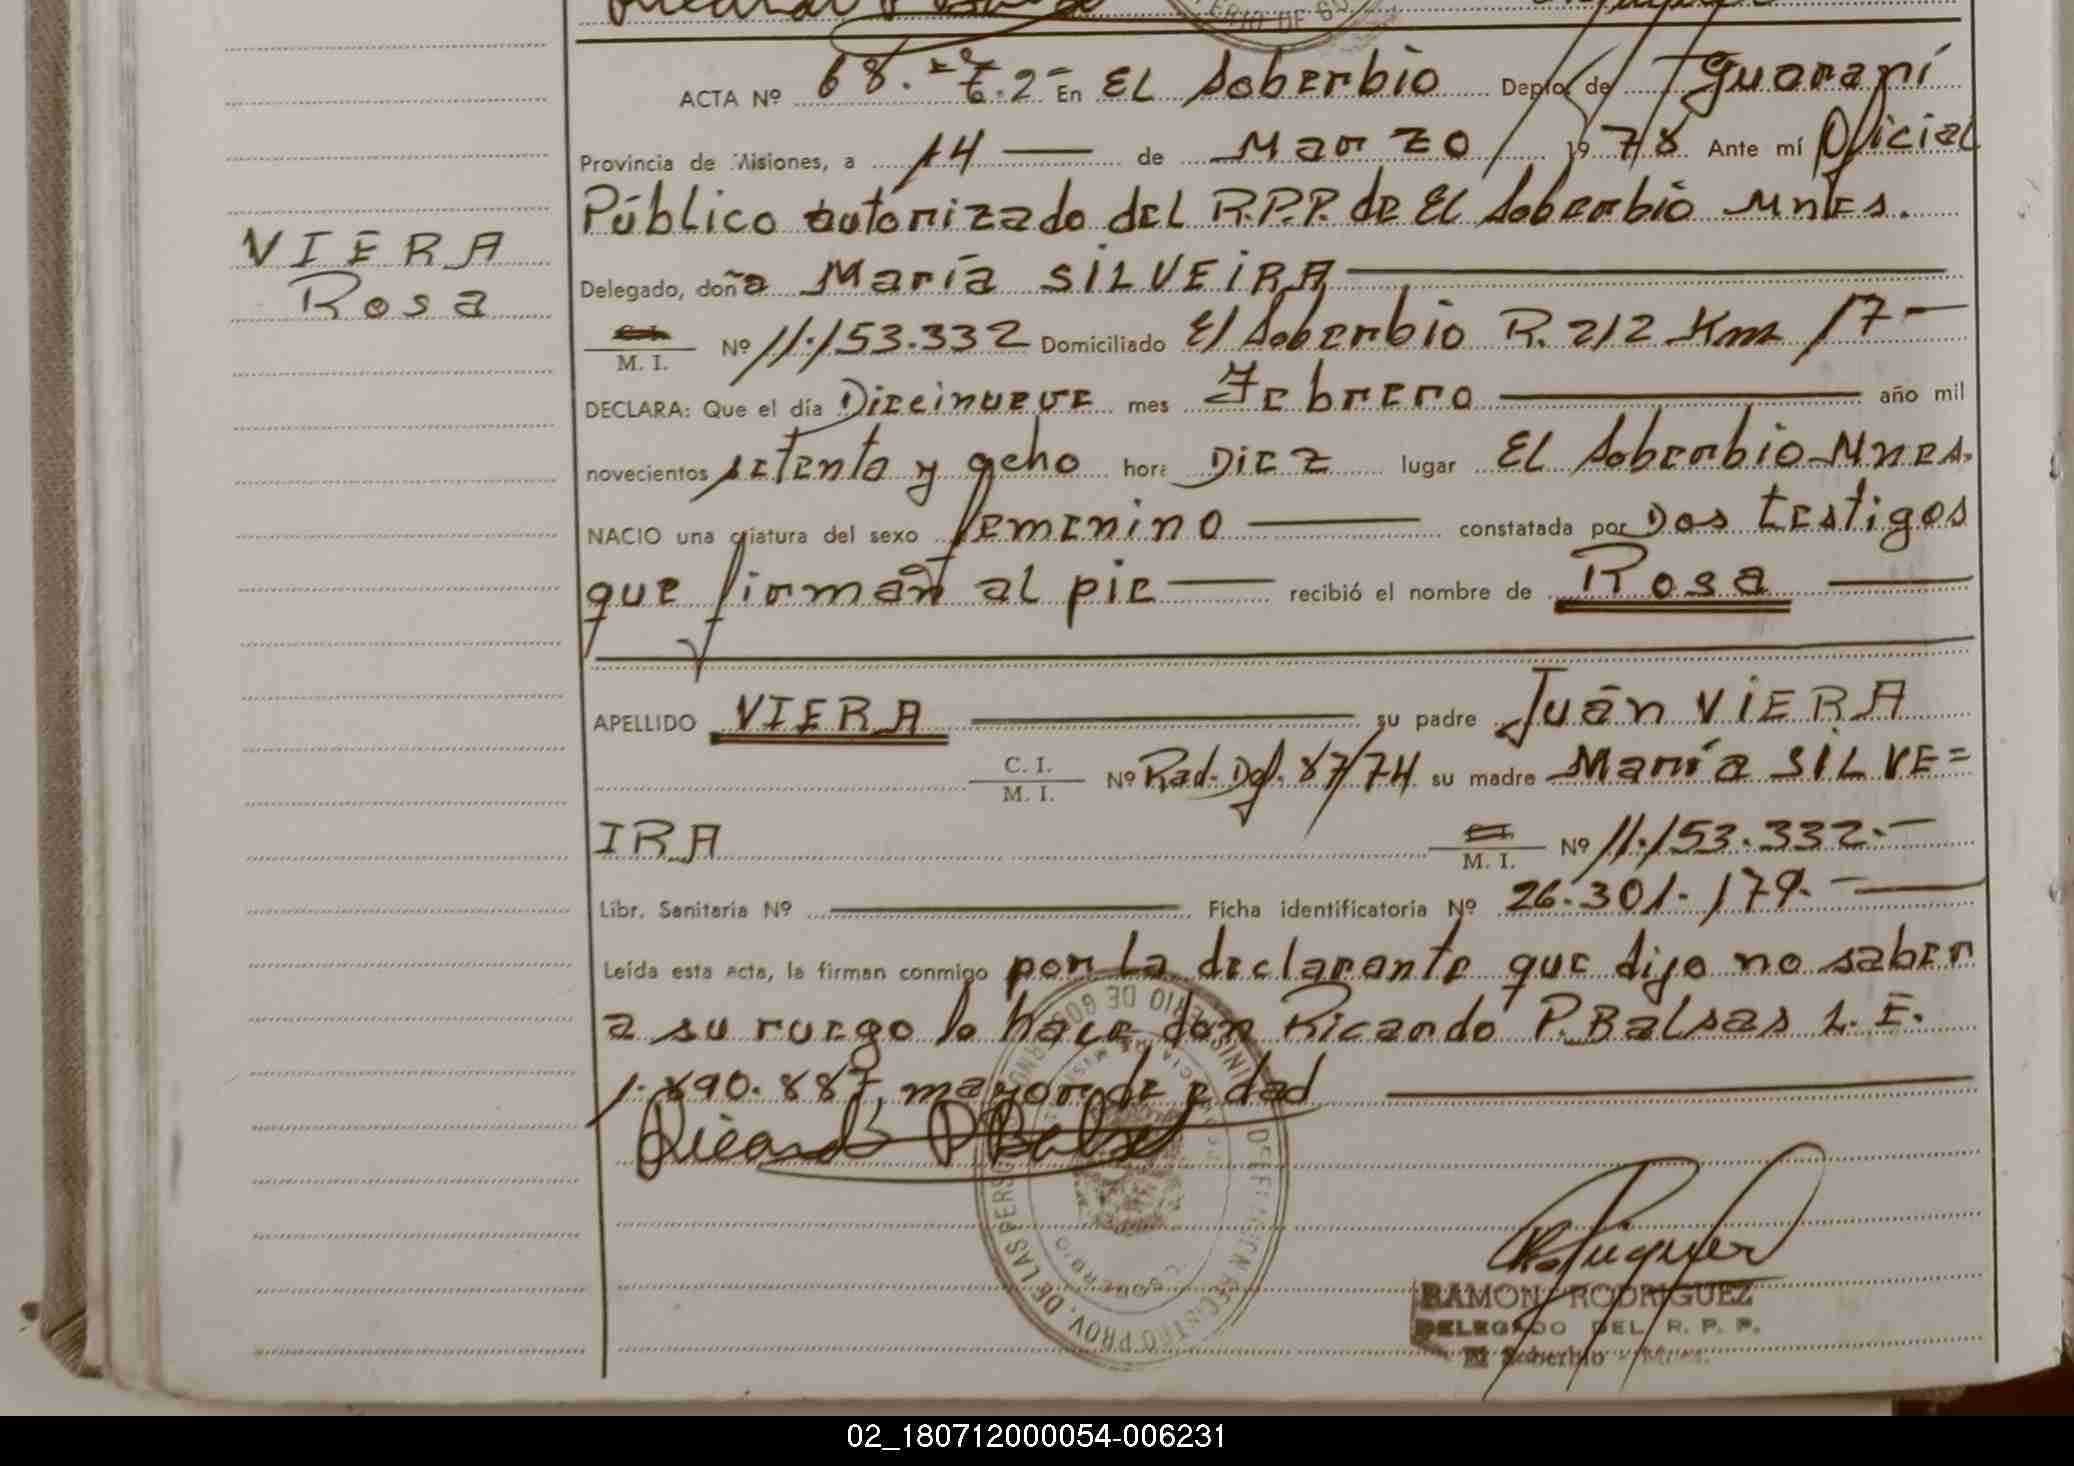 ACTA Nº 68. En El Soberbio Depto. de Guaraní
Provincia de Misiones, a 14 — de Marzo 1978 Ante mí Oficial
Público autorizado del R.P.P. de El Soberbio Mnes.
VIERA
Rosa
Delegado, doña María SILVEIRA
C. I.
M. I. Nº 11.153.332 Domiciliado El Soberbio R. 212 Km 17 —
DECLARA: Que el día Diecinueve mes Febrero año mil
novecientos setenta y ocho hora Diez lugar El Soberbio-Mnes.
NACIO una criatura del sexo femenino constatada por Dos testigos
que firman al pie recibió el nombre de Rosa
APELLIDO VIERA su padre Juán VIERA
C. I.
M. I. Nº Rad. Dof. 87/74 su madre María SILVE=
IRA C. I.
M. I. Nº 11.153.332.-
Libr. Sanitaria Nº Ficha identificatoria Nº 26.301.179.-
Leída esta acta, la firman conmigo por la declarante que dijo no saber
a su ruego lo hace don Ricardo P. Balsas L. E.
1.890.887, mayor de edad
Ricardo P Balsas
RAMON RODRIGUEZ
DELEGADO DEL R. P. P.
El Soberbio - Mnes.
REGISTRO PROV. DE LAS PERS
02_180712000054-006231